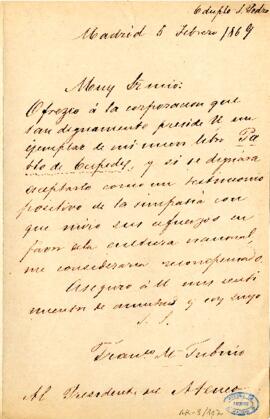 Madrid 5 Febrero 1869
Muy Sr mio:
Ofrezco á la corporacion que
tan dignamente preside U un
ejemplar de mi nuevo libro Pa-
blo de Céspedes, y si se dignara
aceptarlo como un testimonio
positivo de la simpatia con
que miro sus esfuerzos en
favor de la cultura nacional,
me consideraria recompensado.
Aseguro á U mis senti
mientos de amistad y soy suyo
S. S.
Franco M Tubino
Al Presidente del Ateneo